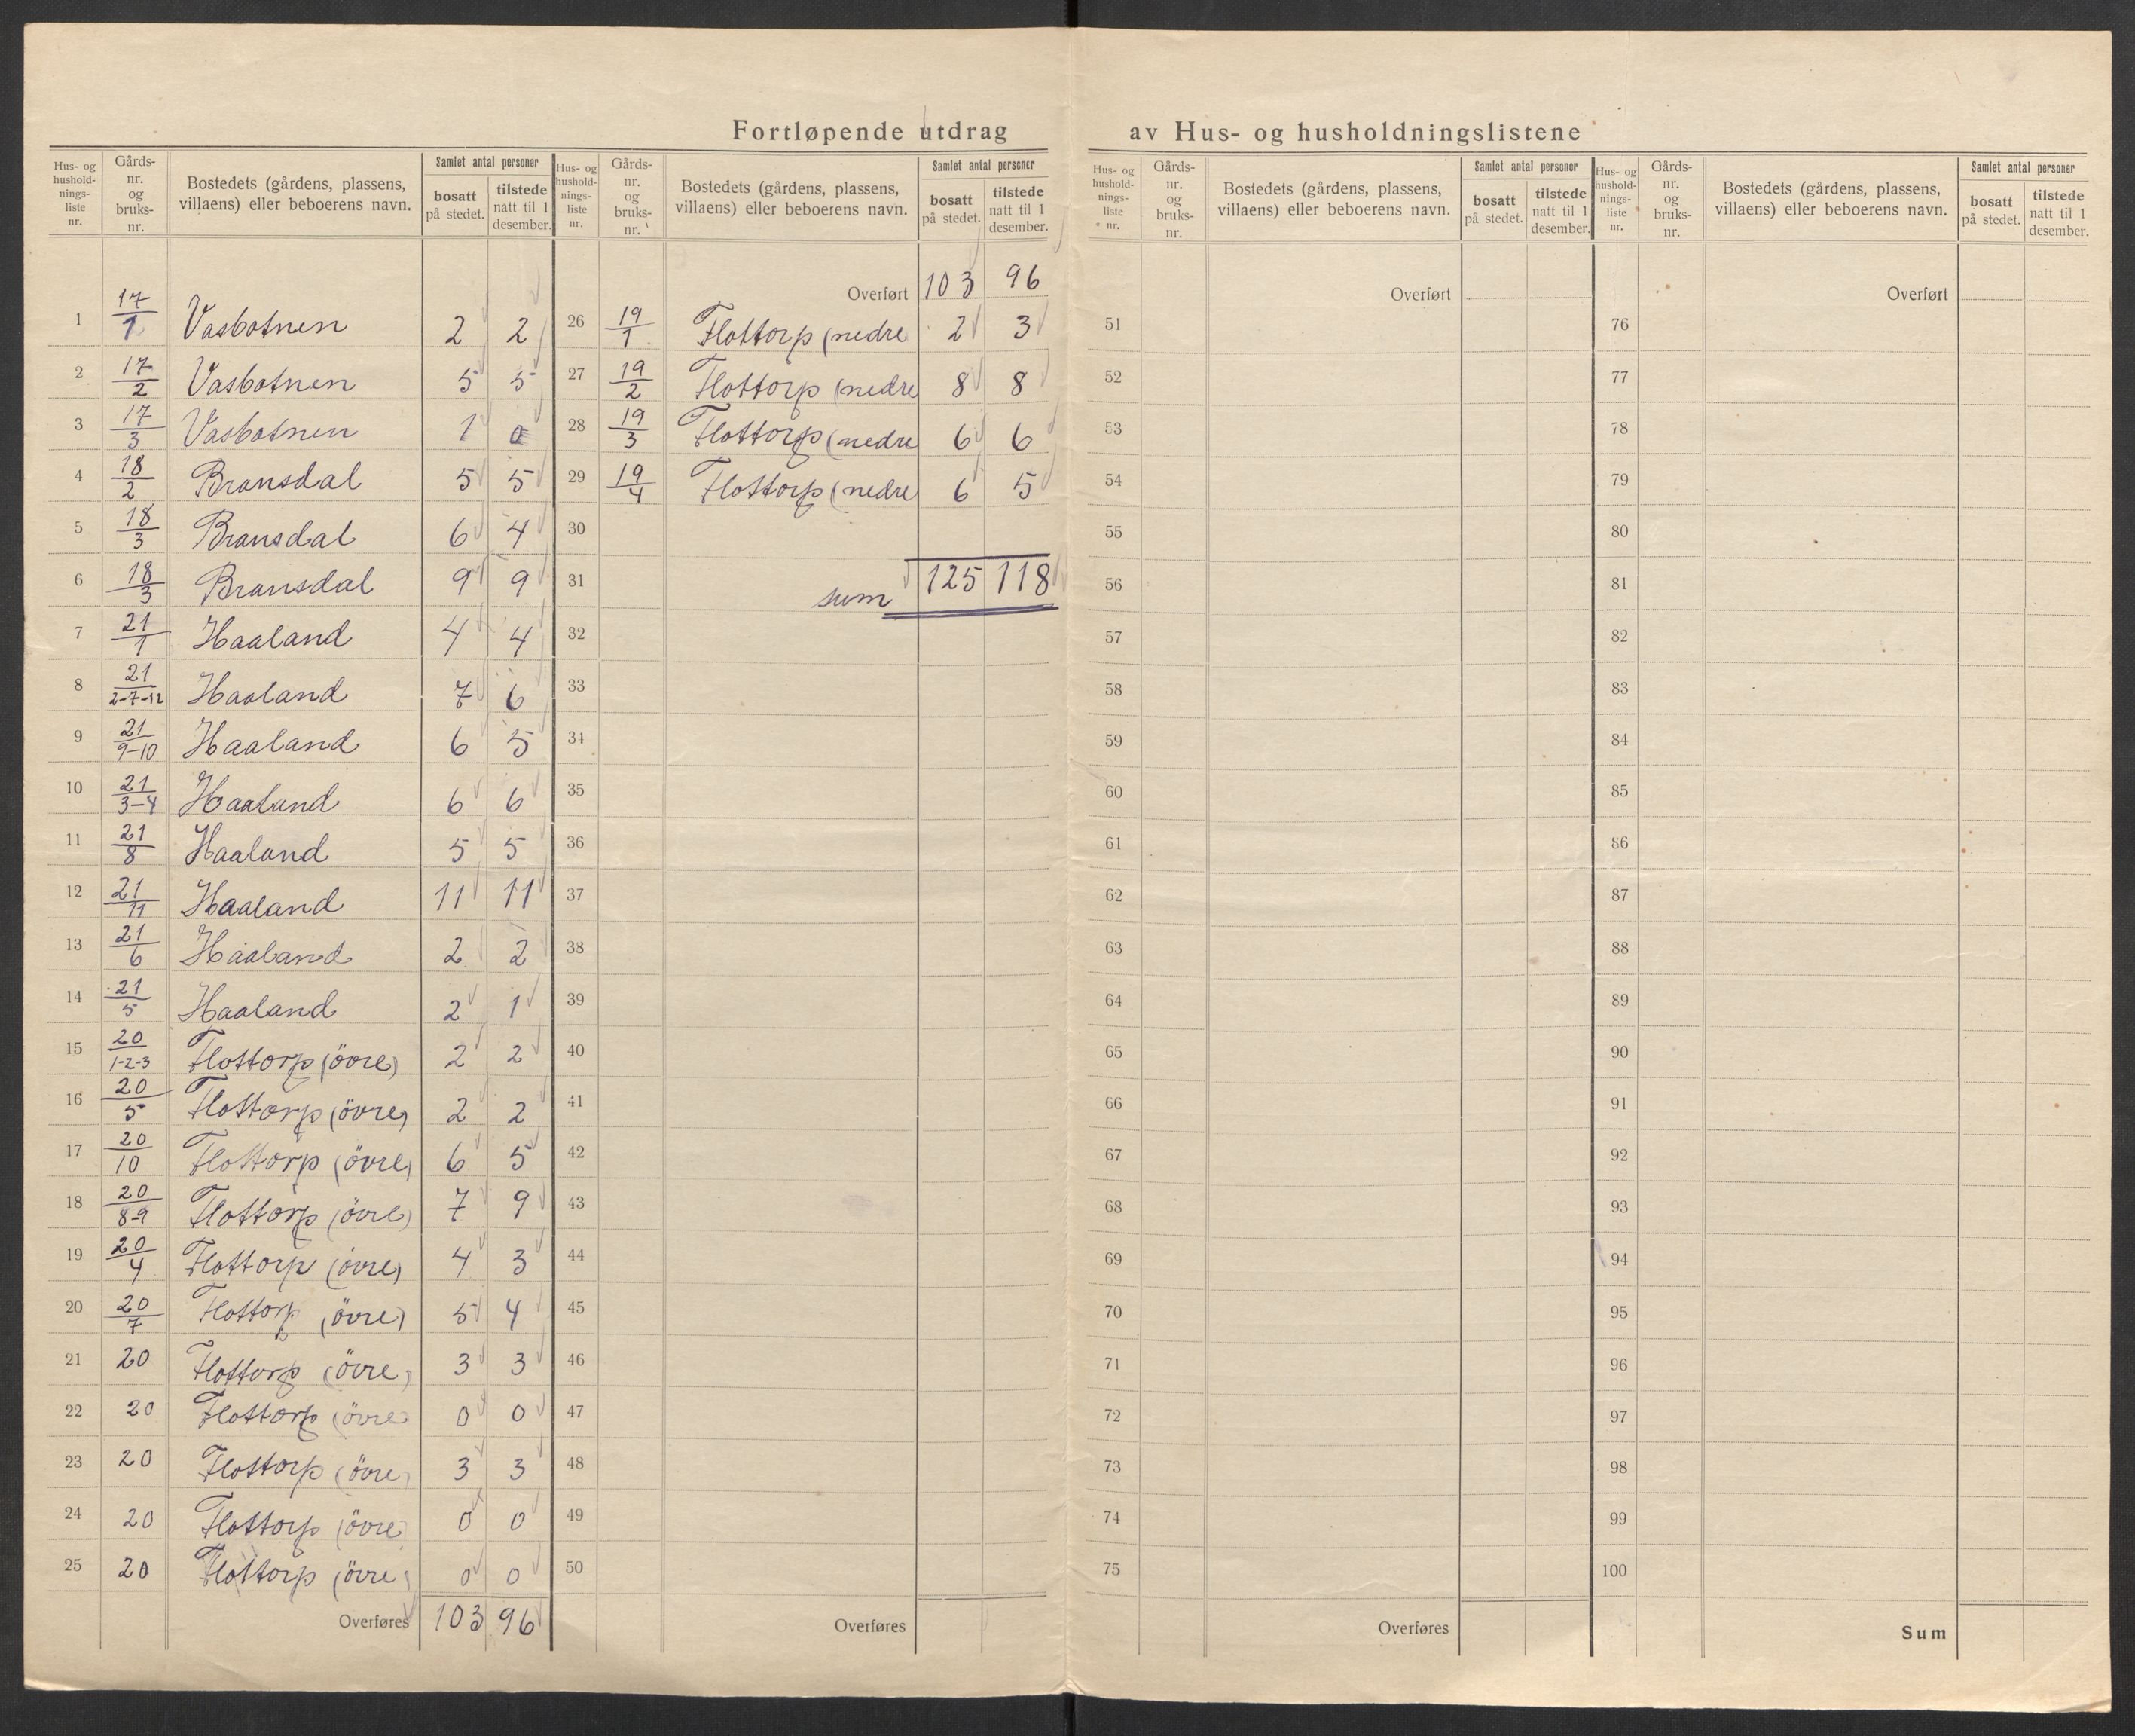 Fortløpende utdrag av Hus- og husholdningslistene
Hus- og husholdnings-liste nr. Gårds-nr. og bruks-nr. Bostedets (gårdens, plassens, villaens) eller beboerens navn. Samlet antal personer bosatt på stedet. tilstede natt til 1 desember.
1 17/1 Vasbotnen 2 2
2 17/2 Vasbotnen 5 5
3 17/3 Vasbotnen 1 0
4 18/2 Bransdal 5 5
5 18/3 Bransdal 6 4
6 18/3 Bransdal 9 9
7 21/1 Haaland 4 4
8 21/2-7-12 Haaland 7 6
9 21/9-10 Haaland 6 5
10 21/3-4 Haaland 6 6
11 21/8 Haaland 5 5
12 21/11 Haaland 11 11
13 21/6 Haaland 2 2
14 21/5 Haaland 2 1
15 20/1-2-3 Flottorp (övre) 2 2
16 20/5 Flottorp (övre) 2 2
17 20/10 Flottorp (övre) 6 5
18 20/8-9 Flottorp (övre) 7 9
19 20/4 Flottorp (övre) 4 3
20 20/7 Flottorp (övre) 5 4
21 20 Flottorp (övre) 3 3
22 20 Flottorp (övre) 0 0
23 20 Flottorp (övre) 3 3
24 20 Flottorp (övre) 0 0
25 20 Flottorp (övre) 0 0
Overføres 103 96
Hus- og husholdnings-liste nr. Gårds-nr. og bruks-nr. Bostedets (gårdens, plassens, villaens) eller beboerens navn. Samlet antal personer bosatt på stedet. tilstede natt til 1 desember.
Overført 103 96
26 19/1 Flottorp (nedre 2 3
27 19/2 Flottorp (nedre 8 8
28 19/3 Flottorp (nedre 6 6
29 19/4 Flottorp (nedre 6 5
30
31 sum 125 118
32
33
34
35
36
37
38
39
40
41
42
43
44
45
46
47
48
49
50
Overføres
Hus- og husholdnings-liste nr. Gårds-nr. og bruks-nr. Bostedets (gårdens, plassens, villaens) eller beboerens navn. Samlet antal personer bosatt på stedet. tilstede natt til 1 desember.
Overført
51
52
53
54
55
56
57
58
59
60
61
62
63
64
65
66
67
68
69
70
71
72
73
74
75
Overføres
Hus- og husholdnings-liste nr. Gårds-nr. og bruks-nr. Bostedets (gårdens, plassens, villaens) eller beboerens navn. Samlet antal personer bosatt på stedet. tilstede natt til 1 desember.
Overført
76
77
78
79
80
81
82
83
84
85
86
87
88
89
90
91
92
93
94
95
96
97
98
99
100
Sum